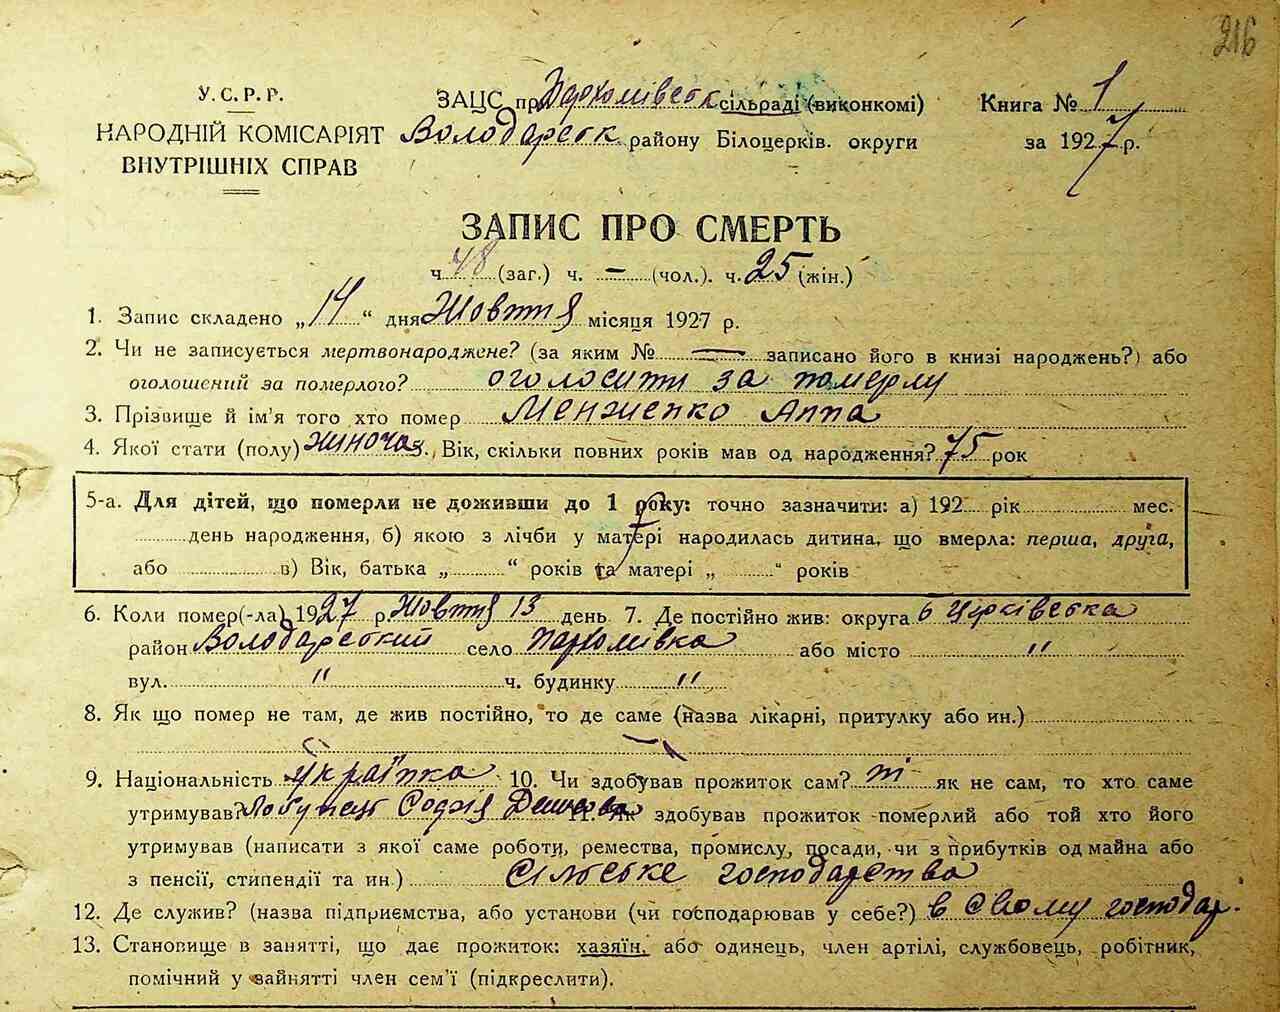 216
У.С.Р.Р.
НАРОДНІЙ КОМІСАРІЯТ
ВНУТРІШНІХ СПРАВ
ЗАЦС при Пархомівськ сільраді (виконкомі)
Володарськ. району Білоцерків. округи
Книга № 1
за 1927 р.
ЗАПИС ПРО СМЕРТЬ
ч. 48 (заг.) ч. — (чол.). ч. 25 (жін.)
1. Запис складено „14“ дня Жовтня місяця 1927 р.
2. Чи не записується мертвонароджене? (за яким № — записано його в книзі народжень?) або
оголошений за померлого? оголосити за померлу
3. Прізвище й ім'я того хто помер Менженко Анна
4. Якої стати (полу) жиноча., Вік, скільки повних років мав од народження? 75 рок
5-а. Для дітей, що померли не доживши до 1 року: точно зазначити: а) 192 рік мес.
день народження, б) якою з лічби у матері народилась дитина, що вмерла: перша, друга,
або в) Вік, батька „ “ років та матері „ “ років
6. Коли помер(-ла) 1927 р. Жовтня 13 день 7. Де постійно жив: округа Б Цірківська
район Володарський село Пархомівка або місто "
вул. " ч. будинку "
8. Як що помер не там, де жив постійно, то де саме (назва лікарні, притулку або ин.)
9. Національність Українка 10. Чи здобував прожиток сам? ні як не сам, то хто саме
утримував? Софія 11. Як здобував прожиток померлий або той хто його
утримував (написати з якої саме роботи, ремества, промислу, посади, чи з прибутків од майна або
з пенсії, стипендії та ин.) Сільське господарства
12. Де служив? (назва підприємства, або установи (чи господарював у себе?) в свому господар.
13. Становище в занятті, що дає прожиток: хазяїн, або одинець, член артілі, службовець, робітник,
помічний у зайнятті член сем'ї (підкреслити).